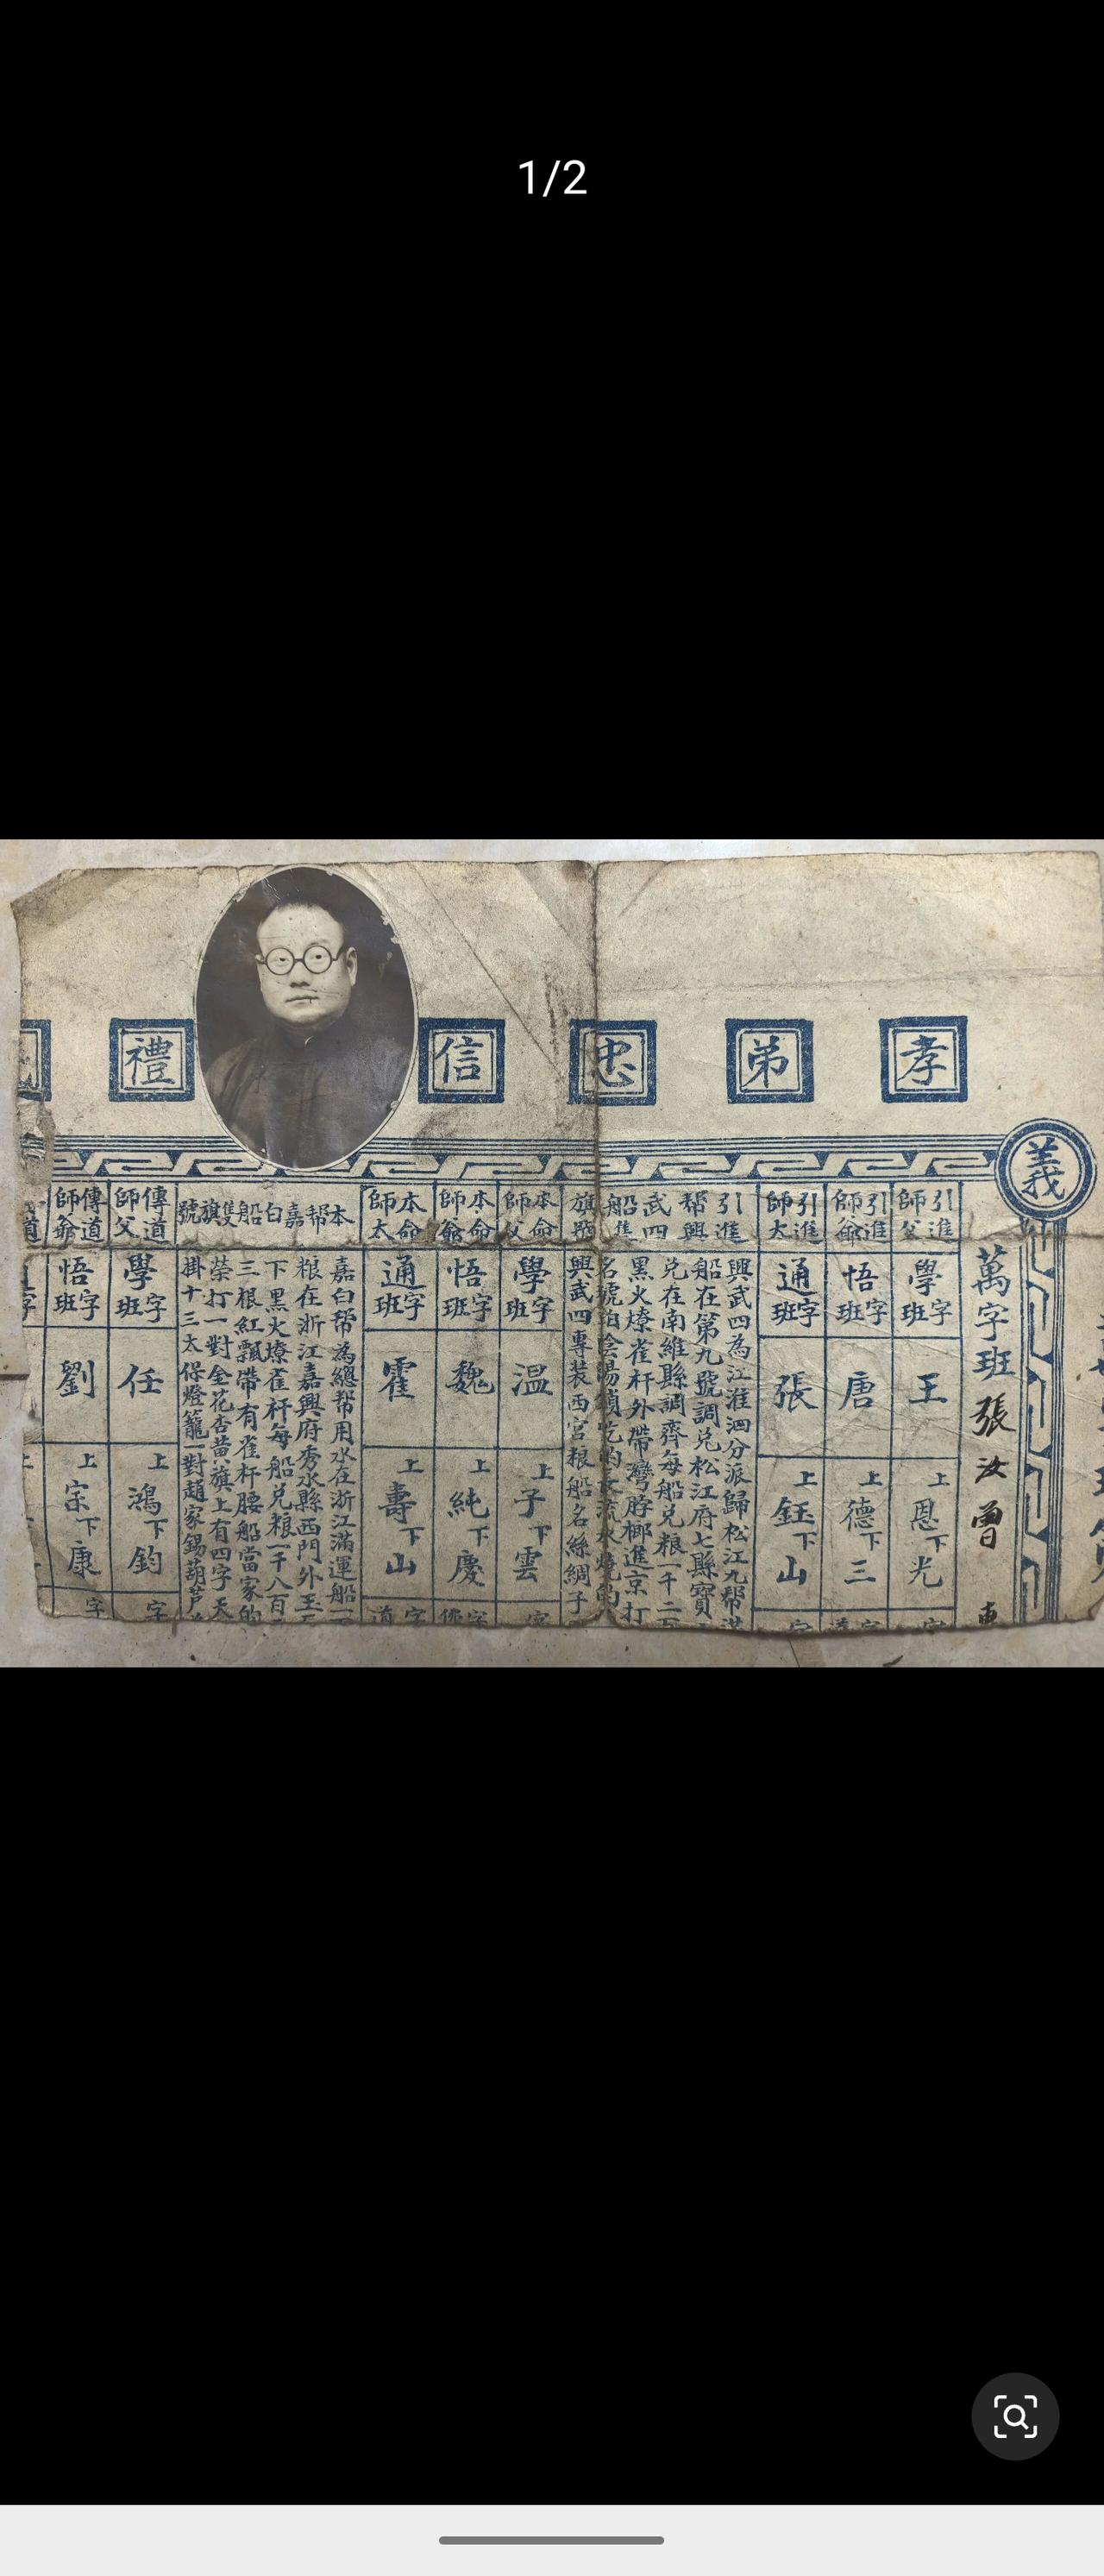 1/2
孝 弟 忠 信 禮
義
萬字班 張汝曾
引進師父
學字班
王
上恩下光
字
引進師爺
悟字班
唐
上德下三
引進師太
通字班
張
上鈺下山
字
引進帮興武四船隻旗號
興武四為江淮泗分派歸松江九帮
船在第九號調兌松江府七縣寶
兌在南維縣調齊每船兌粮一千二百
黑火燎雀杆外帶灣脖榔進京打
興武四專裝西宮粮船名絲綢子
本命師父
學字班
温
上子下雲
本命師爺
悟字班
魏
上純下慶
本命師太
通字班
霍
上壽下山
道字
本帮嘉白船隻旗號
嘉白帮為總帮用水在浙江滿運船
粮在浙江嘉興府秀水縣西門外玉
下黑火燎雀杆每船兌粮一千八百
三根紅飄帶有雀杆腰船當家的
榮打一對金花杏黄旗上有四字天
掛十三太保燈籠一對趙家錫葫芦
傳道師父
學字班
任
上鴻下鈞
字
傳道師爺
悟字班
劉
上宗下康
字